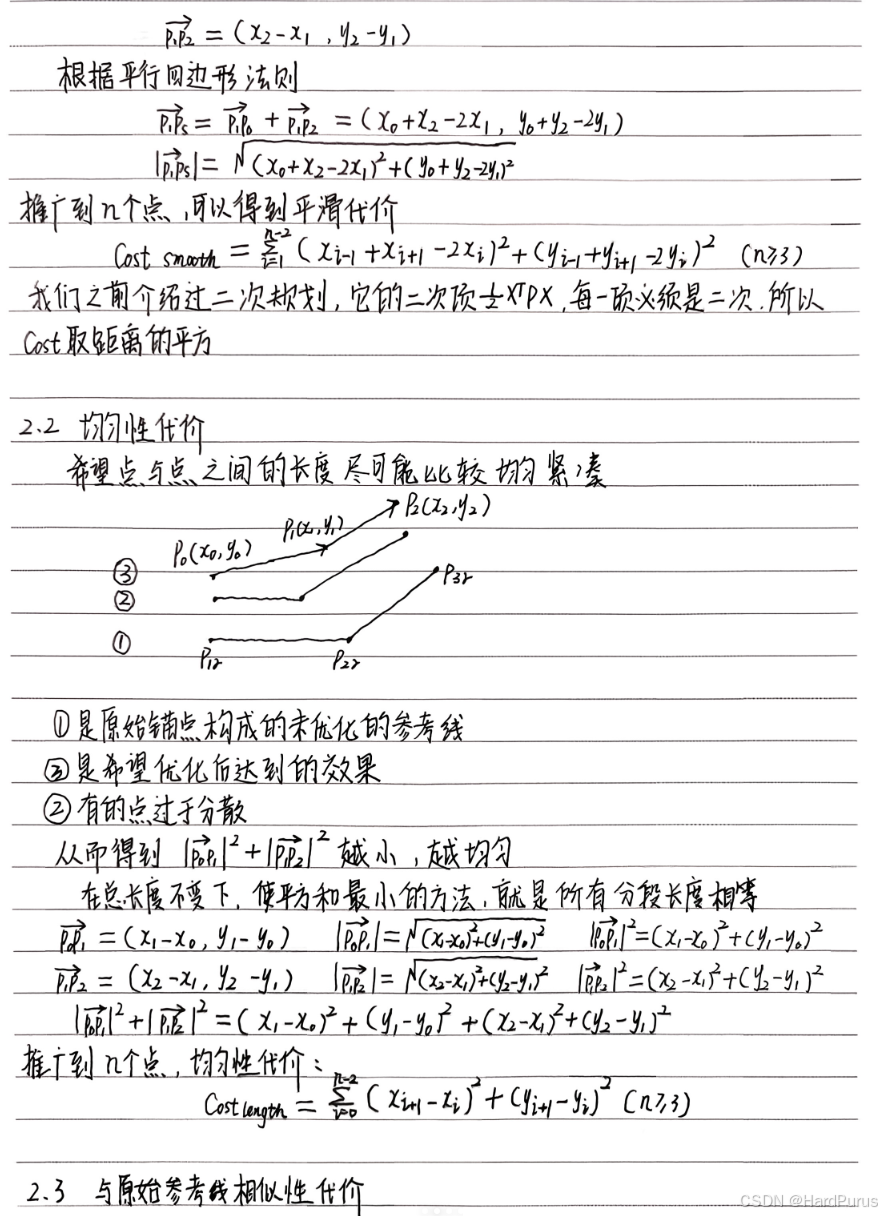 $\overrightarrow{P_1P_2} = (x_2-x_1, y_2-y_1)$
根据平行四边形法则
$\overrightarrow{P_1P_S} = \overrightarrow{P_1P_0} + \overrightarrow{P_1P_2} = (x_0+x_2-2x_1, y_0+y_2-2y_1)$
$|\overrightarrow{P_1P_S}| = \sqrt{(x_0+x_2-2x_1)^2+(y_0+y_2-2y_1)^2}$
推广到n个点,可以得到平滑代价
$Cost_{smooth} = \sum_{i=1}^{n-2} (x_{i-1}+x_{i+1}-2x_i)^2+(y_{i-1}+y_{i+1}-2y_i)^2 \quad (n\geq3)$
我们之前介绍过二次规划,它的二次项$\frac{1}{2}x^TPx$,每一项必须是二次.所以
Cost取距离的平方
2.2 均匀性代价
希望点与点之间的长度尽可能比较均匀紧凑
$P_2(x_2,y_2)$
$P_1(x_1,y_1)$
$P_0(x_0,y_0)$
③
$P_{3r}$
②
①
$P_{1r}$ $P_{2r}$
①是原始锚点构成的未优化的参考线
③是希望优化后达到的效果
②有的点过于分散
从而得到 $|\overrightarrow{P_0P_1}|^2+|\overrightarrow{P_1P_2}|^2$ 越小,越均匀
在总长度不变下,使平方和最小的方法,就是所有分段长度相等
$\overrightarrow{P_0P_1} = (x_1-x_0, y_1-y_0) \quad |\overrightarrow{P_0P_1}| = \sqrt{(x_1-x_0)^2+(y_1-y_0)^2} \quad |\overrightarrow{P_0P_1}|^2=(x_1-x_0)^2+(y_1-y_0)^2$
$\overrightarrow{P_1P_2} = (x_2-x_1, y_2-y_1) \quad |\overrightarrow{P_1P_2}| = \sqrt{(x_2-x_1)^2+(y_2-y_1)^2} \quad |\overrightarrow{P_1P_2}|^2=(x_2-x_1)^2+(y_2-y_1)^2$
$|\overrightarrow{P_0P_1}|^2+|\overrightarrow{P_1P_2}|^2 = (x_1-x_0)^2+(y_1-y_0)^2+(x_2-x_1)^2+(y_2-y_1)^2$
推广到n个点,均匀性代价:
$Cost_{length} = \sum_{i=0}^{n-2} (x_{i+1}-x_i)^2+(y_{i+1}-y_i)^2 \quad (n\geq3)$
2.3 与原始参考线相似性代价
CSDN @HardPurus